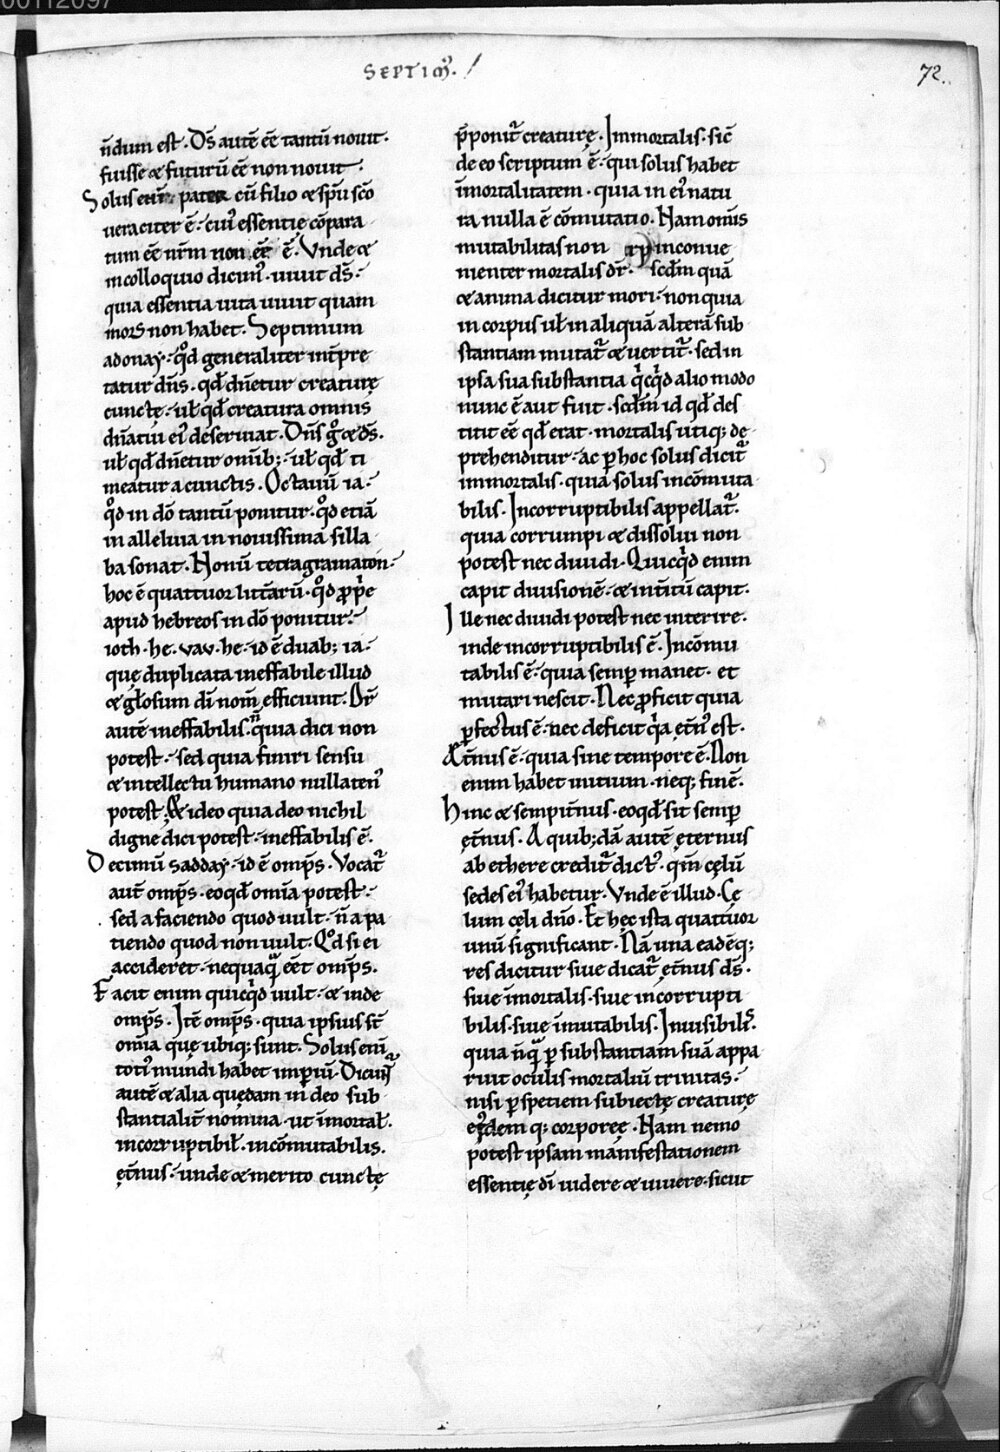 00112097
SEPTIM᷒.
72.
n̄dum est. Ds̄ autē eē tantū nouit.
fuisse & futurū eē non nouit.
Solus enī pater cū filio & sp̄u sc̄o
ueraciter ē. cui᷒ essentię cōpara
tum eē nr̄m non eē ē. Vnde &
in colloquio dicim᷒. uiuit ds̄.
quia essentia uita uiuit quam
mors non habet. Septimum
adonay. qd̄ generaliter int̄pre
tatur dn̄s. qd̄ dn̄etur creaturę
cunctę. ul̄ qd̄ creatura omnis
dn̄atui ei᷒ deseruiat. Dn̄s g̊ & ds̄.
ul̄ qd̄ dn̄etur omīb;. ul̄ qd̄ ti
meatur a cunctis. Octauū ia.
qd̄ in dō tantū ponitur. qd̄ etiā
in alleluia in nouissima silla
ba sonat. Nonū tetragramaton.
hoc ē quattuor litt̄arū. qd̄ ꝓp̄e
apud hebreos in dō ponitur.
ioth. he. vav. he. id ē duab; ia.
quę duplicata ineffabile illud
& gl̄osum dī nom̄ efficiunt. Dr̄
autē ineffabilis. n̄ quia dici non
potest. sed quia finiri sensu
& intellectu humano nullaten᷒
potest. & ideo quia deo nichil
digne dici potest. ineffabilis ē.
Decimū sadday. id ē omp̄s. Vocat᷑
aut̄ omp̄s. eo qd̄ omīa potest.
sed a faciendo quod uult. n̄ a pa
tiendo quod non uult. Qd̄ si ei
accideret. nequaquā eēt omp̄s.
Facit enim quicqͥd uult. & inde
omp̄s. Itē omp̄s. quia ipsius st̄
omīa quę ubiq; sunt. Solus enī
toti᷒ mundi habet imperiū. Dicunt᷑
autē & alia quędam in deo sub
stantialit̄ nomina. ut īmortal̄.
incorruptibil̄. incōmutabilis.
ęt̄nus. unde & merito cunctę
p̄ponit᷑ creaturę. Immortalis. sic̄
de eo scriptum ē. qui solus habet
īmortalitatem. quia in ei᷒ natu
ra nulla ē cōmutatio. Nam omīs
mutabilitas non inconue
nienter mortalis dr̄. scd̄m quā
& anima dicitur mori. non quia
in corpus ul̄ in aliquā alterā sub
stantiam mutat᷑ & uertit᷑. sed in
ipsa sua substantia qͥcqͥd alio modo
nunc ē aut fuit. scd̄m id qd̄ des
titit eē qd̄ erat. mortalis utiq; de
prehenditur. ac ꝑ hoc solus dicit᷑
immortalis. quia solus incōmuta
bilis. Incorruptibilis appellat᷑.
quia corrumpi & dissolui non
potest nec diuidi. Quicqͥd enim
capit diuisionē. & int̄itū capit.
Ille nec diuidi potest nec interire.
inde incorruptibilis ē. Incōmu
tabilis ē. quia semꝑ manet. et
mutari nescit. Nec ꝓficit quia
ꝑfectus ē. nec deficit qͥa ęt̄n᷒ est.
Æt̄nus ē. quia sine tempore ē. Non
enim habet initium. neq; finē.
Hinc & sempit̄nus. eo qd̄ sit semꝑ
ęt̄nus. A quib;dā autē ęternus
ab ethere credit᷑ dict᷒. qm̄ cęlū
sedes ei᷒ habetur. Vnde ē illud. Cę
lum cęli dn̄o. Et hęc ista quattuor
unū significant. Nā una eadēq;
res dicitur siue dicat᷑ ęt̄nus ds̄.
siue īmortalis. siue incorrupti
bilis. siue īmutabilis. Inuisibilis.
quia nq̄ꝗ ꝑ substantiam suā appa
ruit oculis mortaliū trinitas.
nisi ꝑ spetiem subiectę creaturę
ei᷒dem q; corporeę. Nam nemo
potest ipsam manifestationem
essentię dī uidere & uiuere. sicut